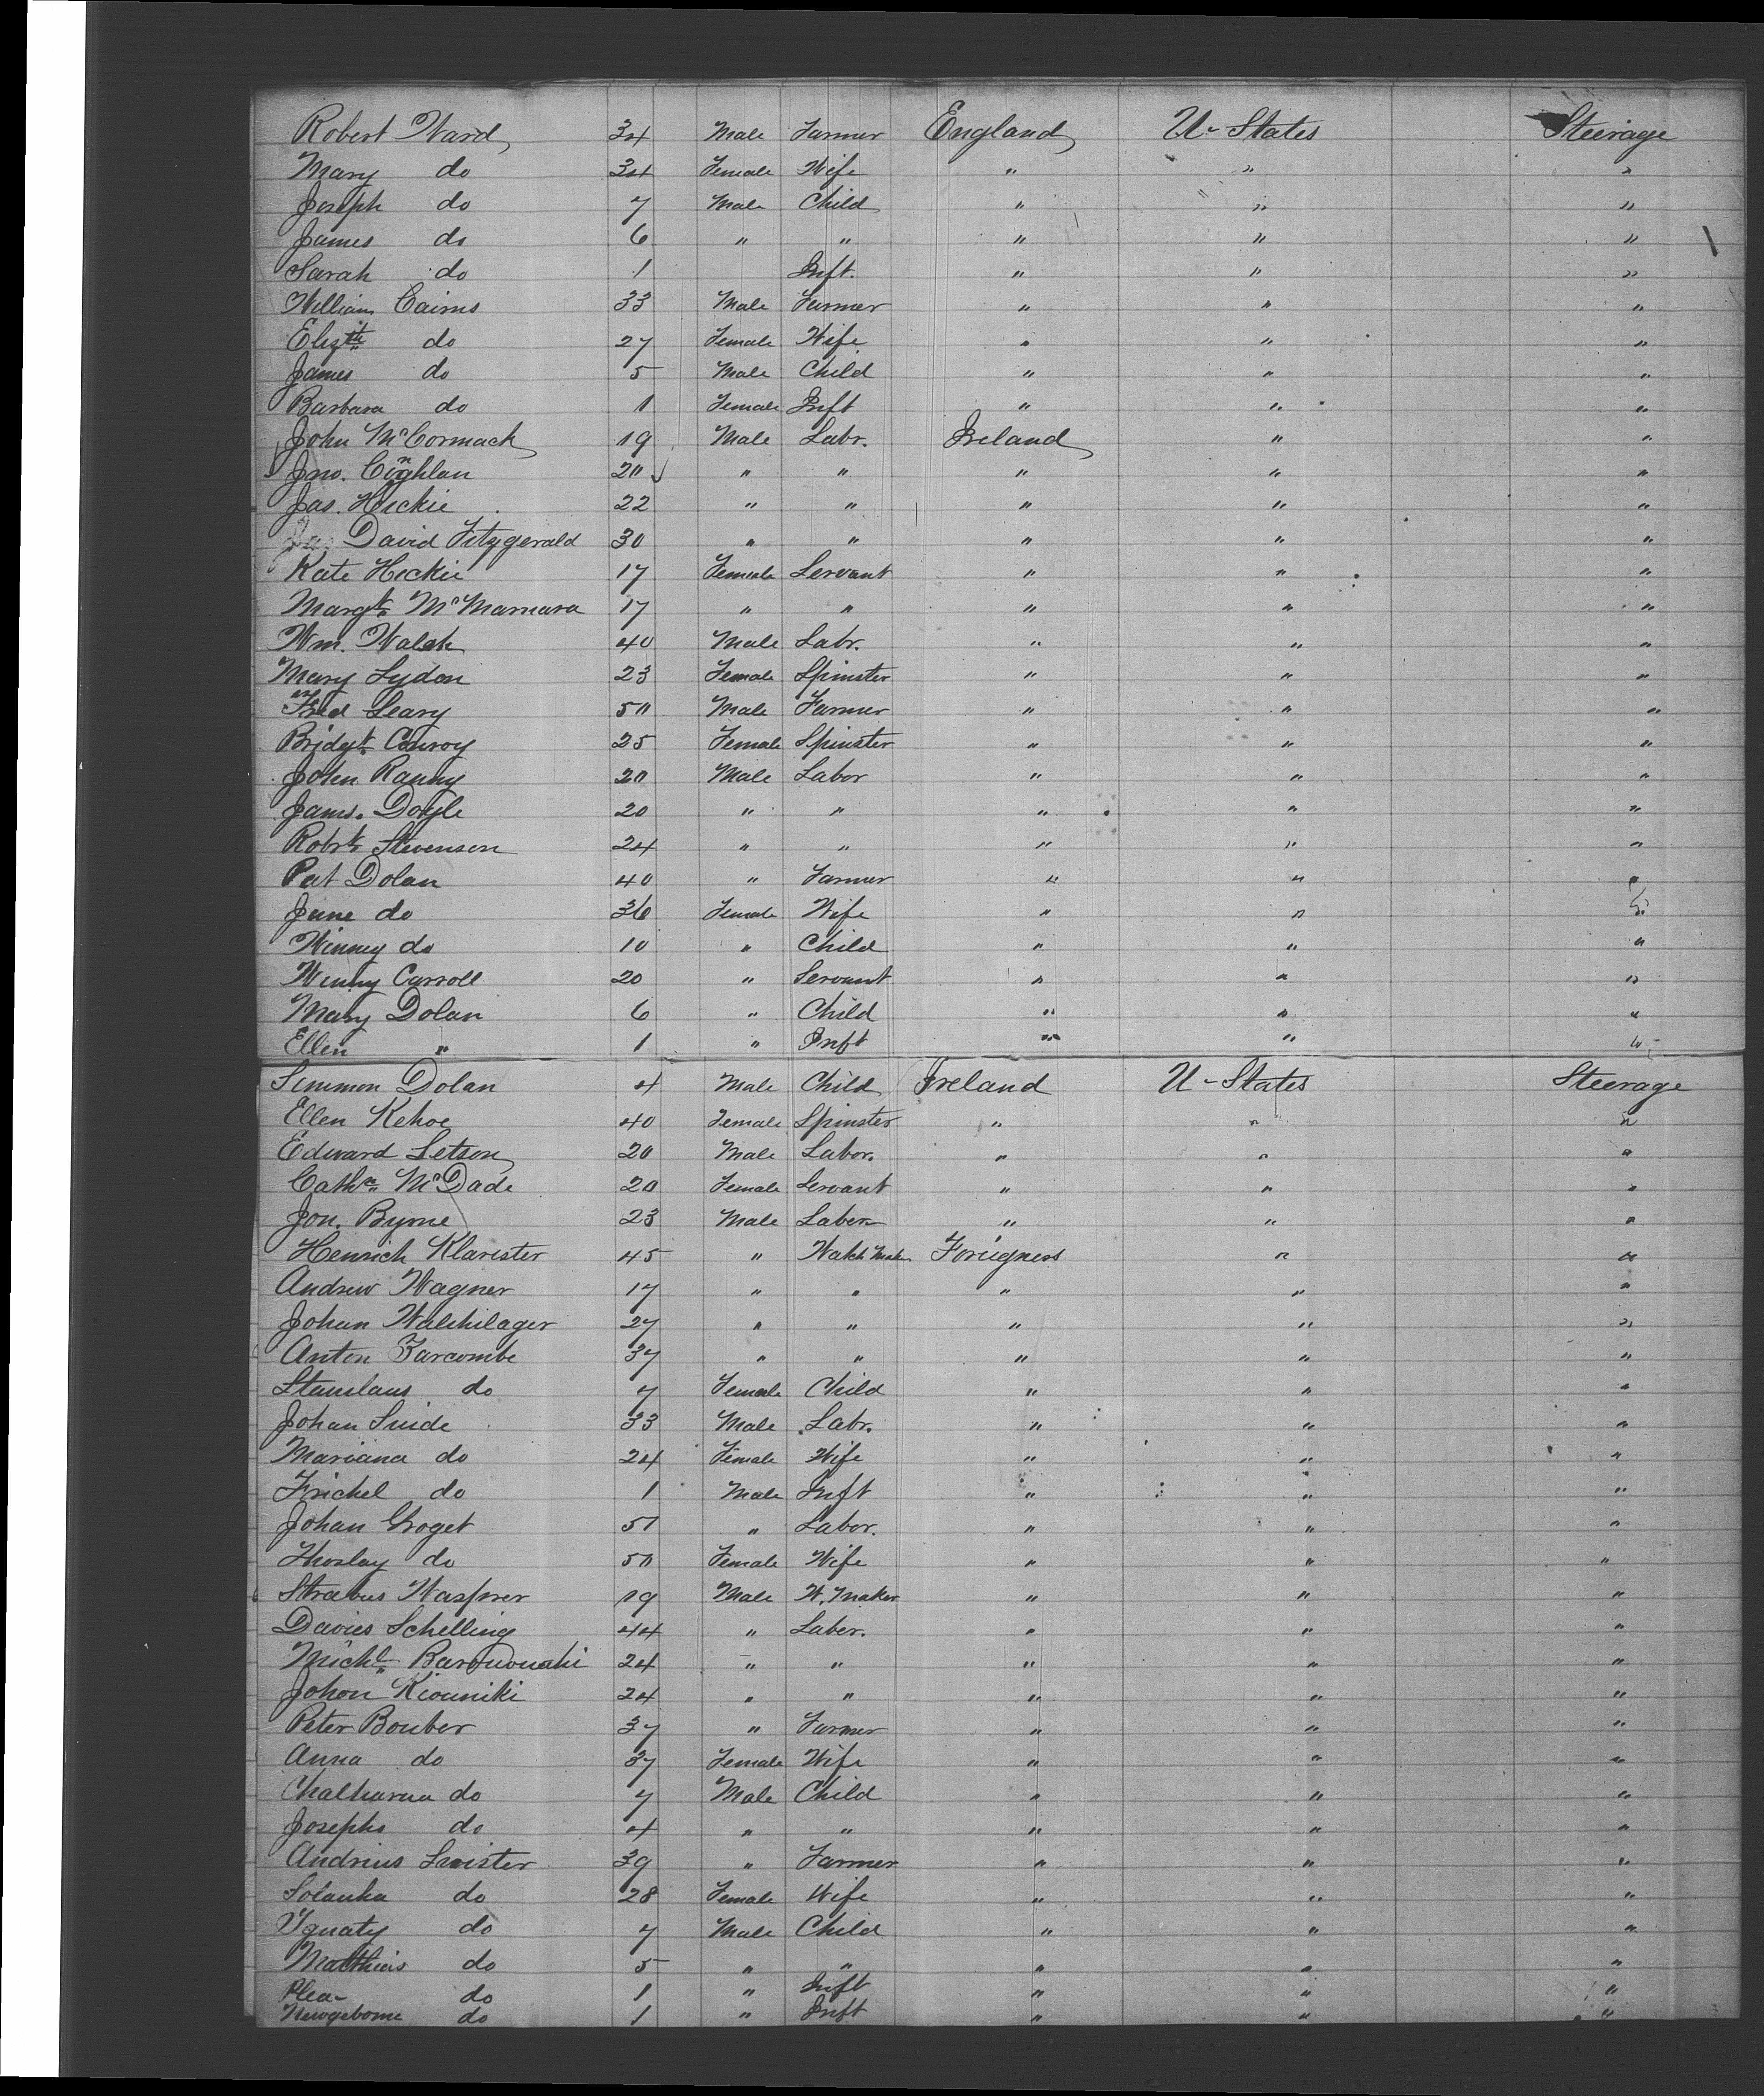 Robert Ward 34 Male Farmer England U-States Steerage
Mary do 34 Female Wife " " "
Joseph do 7 Male Child " " "
James do 6 " " " " "
Sarah do 1 Inft. " " "
William Cairns 33 Male Farmer " " "
Elizth do 27 Female Wife " " "
James do 5 Male Child " " "
Barbara do 1 Female Inft " " "
John McCormack 19 Male Labr. Ireland " "
Jno. Coghlan 20 " " " " "
Jas. Hickie 22 " " " " "
David Fitzgerald 30 " " " " "
Kate Hickie 17 Female Servant " " "
Margt. McMamara 17 " " " " "
Wm. Walsh 40 Male Labr. " " "
Mary Lydon 23 Female Spinster " " "
Leary 50 Male Farmer " " "
Bridgt. Conroy 25 Female Spinster " " "
John Ranny 20 Male Labor " " "
James. Doyle 20 " " " " "
Robrt. Stevenson 24 " " " " "
Pat Dolan 40 " Farmer " " "
Jane do 36 Female Wife " " "
Winney do 10 " Child " " "
Winny Carroll 20 " Servant " " "
Mary Dolan 6 " Child " " "
Ellen " 1 " Inft " " "
Simmon Dolan 4 Male Child Ireland U-States Steerage
Ellen Kehoe 40 Female Spinster " " "
Edward Letson 20 Male Labor. " " "
Cathn. McDade 20 Female Servant " " "
Jon. Byrne 23 Male Labor " " "
Henrich Klarister 45 " Watch Maker Foreigners " "
Andrew Wagner 17 " " " " "
Johan Walchilager 27 " " " " "
Anton Zarcombe 37 " " " " "
Stanslaus do 7 Female Child " " "
Johan Suide 33 Male Labr. " " "
Mariana do 24 Female Wife " " "
Frichel do 1 Male Inft " " "
Johan Groget 51 " Labor. " " "
do 50 Female Wife " " "
19 Male W. Maker " " "
Davies Schelling 44 " Labor. " " "
Michl. 24 " " " " "
Johon Kiouniki 24 " " " " "
Peter Bouber 37 " Farmer " " "
Anna do 37 Female Wife " " "
Chatharna do 7 Male Child " " "
Josepha do 4 " " " " "
Andrius Swister 39 " Farmer " " "
Solanka do 28 Female Wife " " "
Ygnaty do 7 Male Child " " "
Matthias do 5 " " " " "
Plea- do 1 " Inft " " "
Newgeborne do 1 " Inft " " "